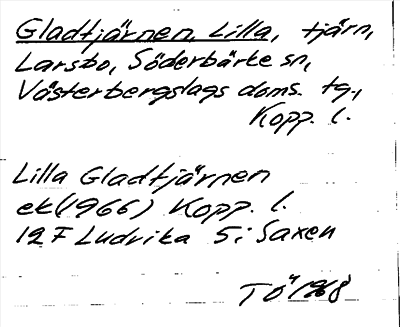 Gladtjärnen, Lilla, tjärn,
Larsbo, Söderbärke sn,
Västerbergslags doms. tg.,
Kopp. l.
Lilla Gladtjärnen
ek(1966) Kopp. l.
12F Ludvika 5i Saxen
TÖ 1968